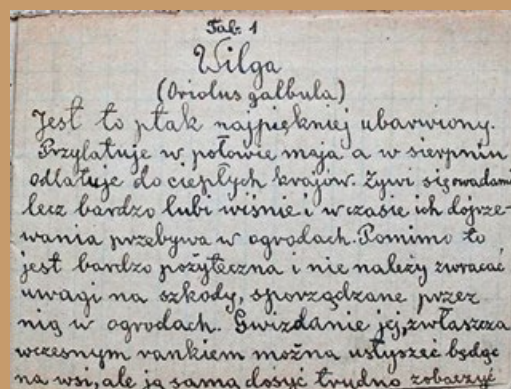 Tab. 1
Wilga
(Oriolus galbula)
Jest to ptak najpiękniej ubarwiony.
Przylatuje w połowie maja a w sierpniu
odlatuje do ciepłych krajów. Żywi się owadami
lecz bardzo lubi wiśnie i w czasie ich dojrze-
wania przebywa w ogrodach. Pomimo to
jest bardzo pożyteczna i nie należy zwracać
uwagi na szkody, sporządzane przez
nią w ogrodach. Gwizdanie jej, zwłaszcza
wczesnym rankiem można usłyszeć będąc
na wsi, ale ją samą dosyć trudno zobaczyć